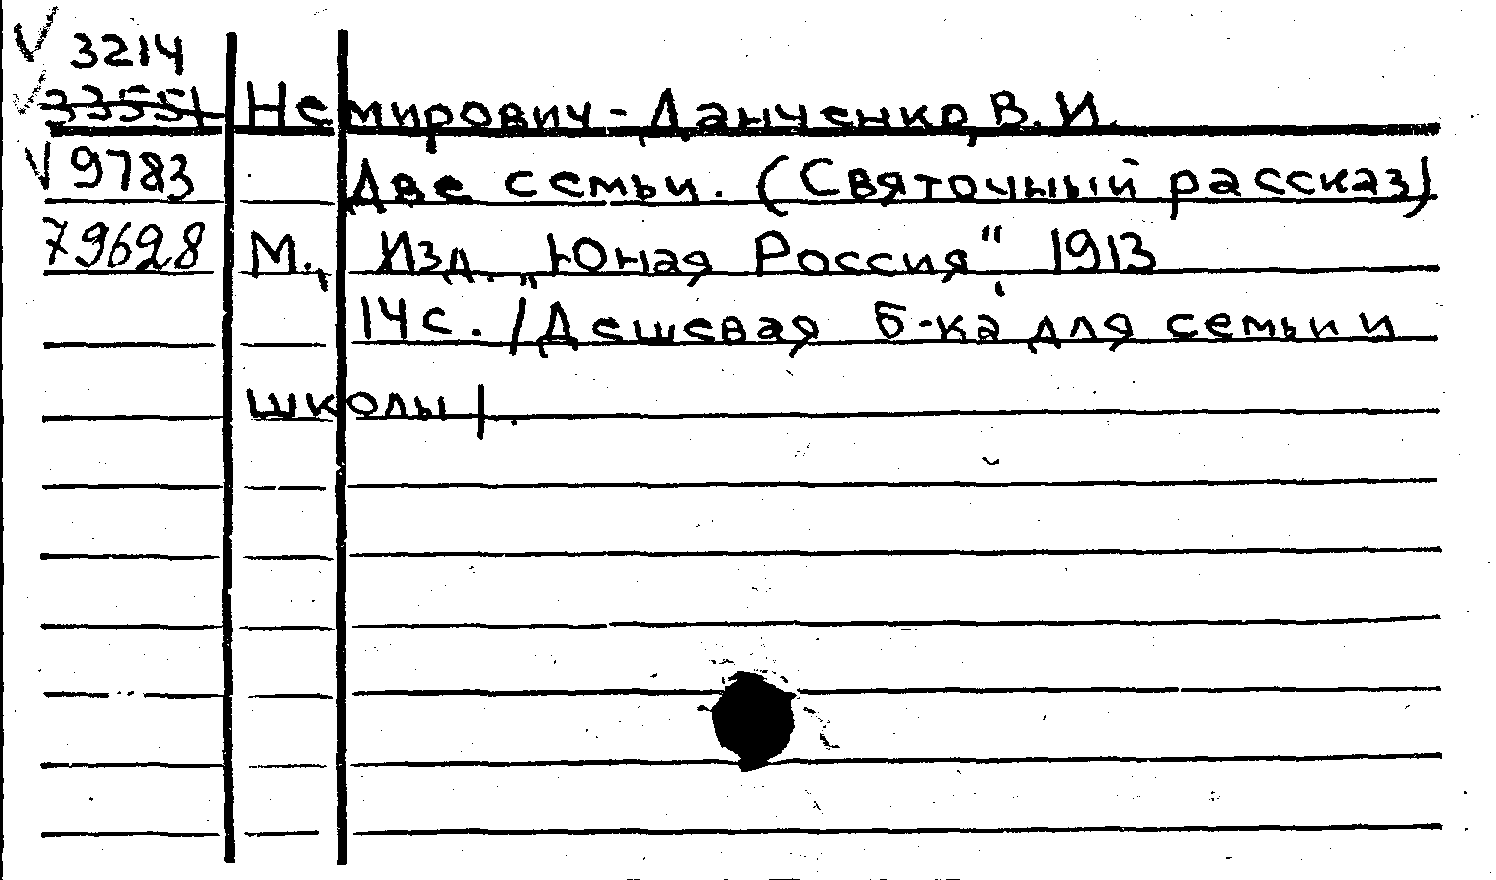 √ 3214
√ 33551 Немирович-Данченко, В. И.
√ 9783 Две семьи. (Святочный рассказ)
79628 М., Изд. „Юная Россия“ 1913
14 с. /Дешевая б-ка для семьи и
школы/.